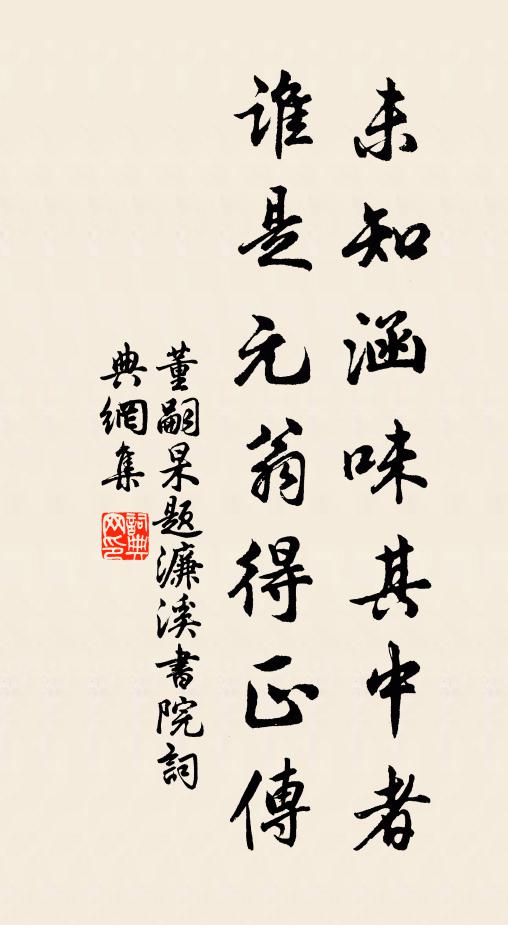 未知涵味其中者
誰是元翁得正傳
董嗣杲題濂溪書院詞
典網集
詞典
网印